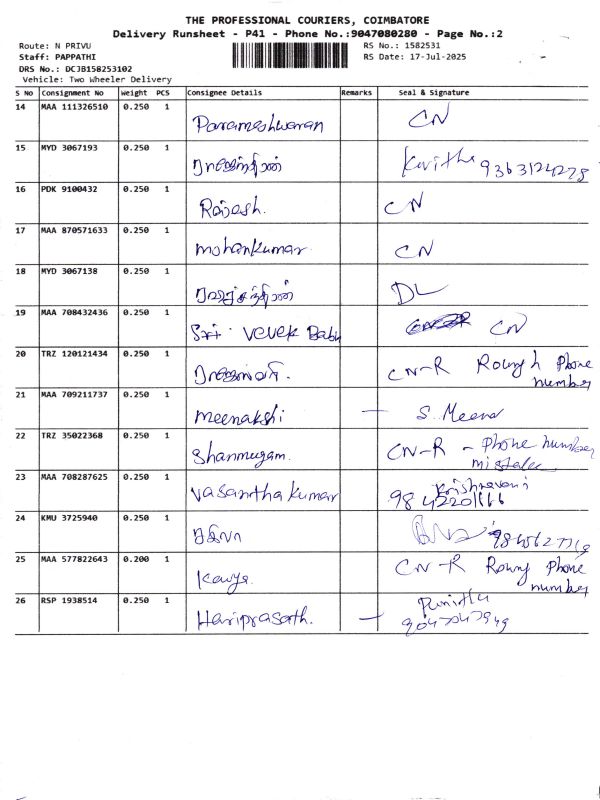 THE PROFESSIONAL COURIERS, COIMBATORE
Delivery Runsheet - P41 - Phone No.:9047080280 - Page No.:2
Route: N PRIVU
RS No.: 1582531
Staff: PAPPATHI
RS Date: 17-Jul-2025
DRS No.: DCJB158253102
Vehicle: Two Wheeler Delivery
S No Consignment No Weight PCS Consignee Details Remarks Seal & Signature
14 MAA 111326510 0.250 1 Parameshwaran CN
15 MYD 3067193 0.250 1 Kavitha 9363124278
16 PDK 9100432 0.250 1 Rajesh. CN
17 MAA 870571633 0.250 1 mohankumar. CN
18 MYD 3067138 0.250 1 DL
19 MAA 708432436 0.250 1 Sri. Vevek Babu CN
20 TRZ 120121434 0.250 1 CN-R Phone number
21 MAA 709211737 0.250 1 meenakshi — S. Meena
22 TRZ 35022368 0.250 1 Shanmugam. CN-R - Phone number
23 MAA 708287625 0.250 1 vasanthakumar
24 KMU 3725940 0.250 1
25 MAA 577822643 0.200 1 Kavya. CN-R Phone number
26 RSP 1938514 0.250 1 Hariprasath. —